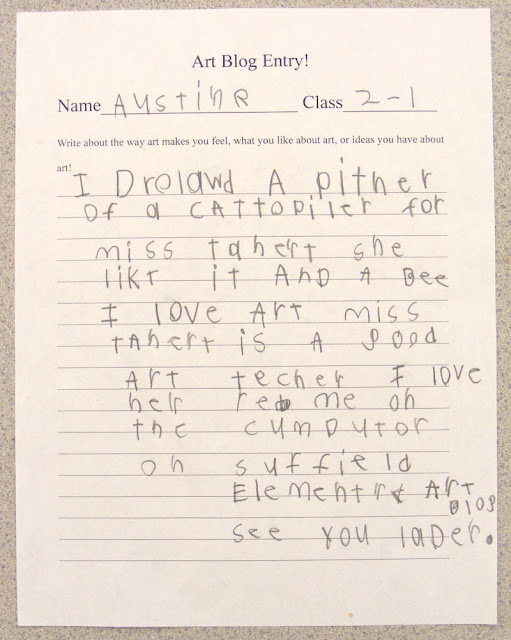 Art Blog Entry!
Name Austine Class 2-1
Write about the way art makes you feel, what you like about art, or ideas you have about
art!
I Drolawd A pither
of a cattopiler for
miss tahert she
likt it AnD A Bee
I love Art miss
tahert is A good
Art techer I love
her red me on
the cumputor
on suffield
Elementry Art
blog
see you lader.